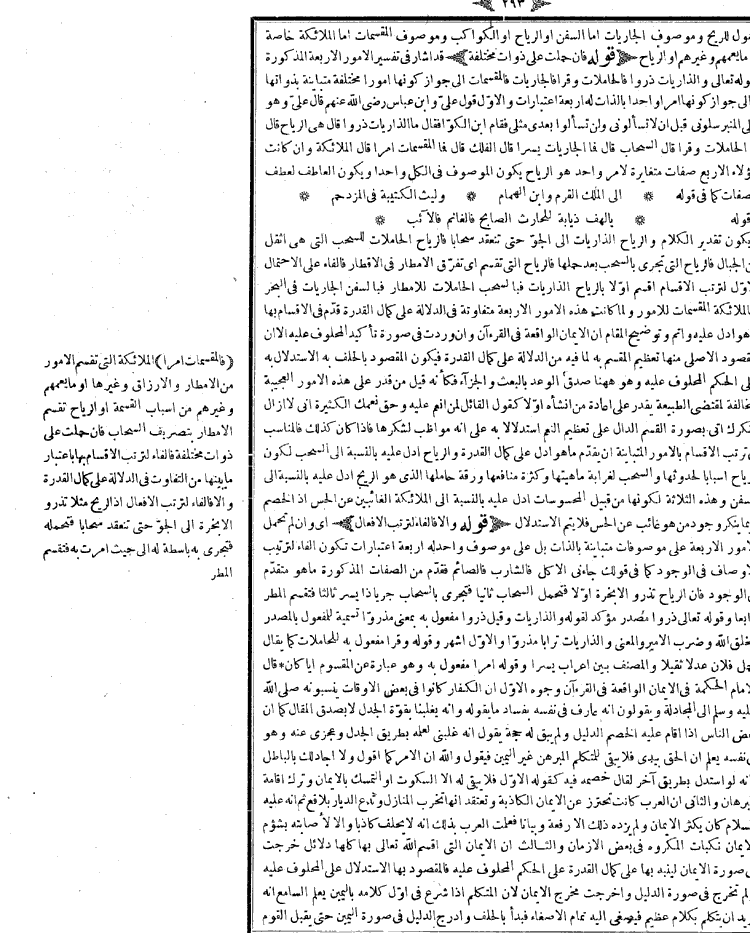 ٢٩٣
للريح وموصوف الجاريات اما السفن او الرياح او الكواكب وموصوف المقسمات اما الملائكة خاصة
وغيرهم او الرياح ﴿قوله فان حملت على ذوات مختلفة﴾ قد اشار فى تفسير الامور الاربعة المذكورة
تعالى والذاريات ذروا فالحاملات وقرا فالجاريات فالمقسمات الى جواز كونها امورا مختلفة متباينة بذواتها
الى جواز كونها امرا واحدا بالذات له اربعة اعتبارات والاول قول على وابن عباس رضى الله عنهم قال على وهو
المنبر سلونى قبل ان لا تسألونى ولن تسألوا بعدى مثلى فقام ابن الكوا فقال ما الذاريات ذروا قال هى الرياح قال
الحاملات وقرا قال السحاب قال فما الجاريات يسرا قال الفلك قال فما المقسمات امرا قال الملائكة وان كانت
الاربع صفات متغايرة لامر واحد هو الرياح يكون الموصوف فى الكل واحدا ويكون العاطف لعطف
كما فى قوله ❊ الى الملك القرم وابن الهمام ❊ وليث الكتيبة فى المزدحم ❊
❊ يالهف ذيابة للحارث الصابح فالغانم فالآئب ❊
يكون تقدير الكلام والرياح الذاريات الى الجو حتى تنعقد سحابا فالرياح الحاملات للسحب التى هى اثقل
الجبال فالرياح التى تجرى بالسحب بعد حملها فالرياح التى تقسم اى تفرق الامطار فى الاقطار فالفاء على الاحتمال
لترتب الاقسام اقسم اولا بالرياح الذاريات فبالسحب الحاملات للامطار فبالسفن الجاريات فى البحر
المقسمات للامور ولما كانت هذه الامور الاربعة متفاوتة فى الدلالة على كمال القدرة قدم فى الاقسام بها
ادل عليه واتم وتوضيح المقام ان الايمان الواقعة فى القرءآن وان وردت فى صورة تأكيد المحلوف عليه الا ان
الاصلى منها تعظيم المقسم به لما فيه من الدلالة على كمال القدرة فيكون المقصود بالحلف به الاستدلال به
الحكم المحلوف عليه وهو ههنا صدق الوعد بالبعث والجزآء فكأنه قيل من قدر على هذه الامور العجيبة
لمقتضى الطبيعة يقدر على اعادة من انشأه اولا كقول القائل لمن انعم عليه وحق نعمك الكثيرة انى لا ازال
اتى بصورة القسم الدال على تعظيم النعم استدلالا به على انه مواظب لشكرها فاذا كان كذلك فالمناسب
ترتب الاقسام بالامور المتباينة ان يقدم ما هو ادل على كمال القدرة والرياح ادل عليه بالنسبة الى السحب لكون
اسبابا لحدوثها والسحب لغرابة ماهيتها وكثرة منافعها ورقة حاملها الذى هو الريح ادل عليه بالنسبة الى
وهذه الثلاثة لكونها من قبيل المحسوسات ادل عليه بالنسبة الى الملائكة الغائبين عن الحس اذ الخصم
ينكر وجود من هو غائب عن الحس فلا يتم الاستدلال ﴿قوله والا فالفاء لترتب الافعال﴾ اى وان لم تحمل
الاربعة على موصوفات متباينة بالذات بل على موصوف واحد له اربعة اعتبارات تكون الفاء لترتيب
فى الوجود كما فى قولك جاءنى الآكل فالشارب فالصائم فقدم من الصفات المذكورة ما هو متقدم
الوجود فان الرياح تذرو الابخرة اولا فتحمل السحاب ثانيا فتجرى بالسحاب جريا ذا يسر ثالثا فتقسم المطر
وقوله تعالى ذروا مصدر مؤكد لقوله والذاريات وقيل ذروا مفعول به بمعنى مذروا تسمية للمفعول بالمصدر
الله وضرب الامير والمعنى والذاريات ترابا مذروا والاول اشهر وقوله وقرا مفعول به للحاملات كما يقال
فلان عدلا ثقيلا والمصنف بين اعراب يسرا وقوله امرا مفعول به وهو عبارة عن المقسوم ايا كان ❊ قال
الحكمة فى الايمان الواقعة فى القرءآن وجوه الاول ان الكفار كانوا فى بعض الاوقات ينسبونه صلى الله
وسلم الى المجادلة ويقولون انه عارف فى نفسه بفساد ما يقوله وانه يغلبنا بقوة الجدل لا بصدق المقال كما ان
الناس اذا اقام عليه الخصم الدليل ولم يبق له حجة يقول انه غلبنى لعلمه بطريق الجدل وعجزى عنه وهو
نفسه يعلم ان الحق بيدى فلا يبقى للمتكلم المبرهن غير اليمين فيقول والله ان الامر كما اقول ولا اجادلك بالباطل
لو استدل بطريق آخر لقال خصمه فيه كقوله الاول فلا يبقى له الا السكوت او التمسك بالايمان وترك اقامة
والثانى ان العرب كانت تحترز عن الايمان الكاذبة وتعتقد انها تخرب المنازل وتدع الديار بلاقع ثم انه عليه
كان يكثر الايمان ولم يزده ذلك الا رفعة وبيانا فعلمت العرب بذلك انه لا يحلف كاذبا والا لأصابته بشؤم
نكبات المكروه فى بعض الازمان والثالث ان الايمان التى اقسم الله تعالى بها كلها دلائل خرجت
صورة الايمان لينبه بها على كمال القدرة على الحكم المحلوف عليه فالمقصود بها الاستدلال على المحلوف عليه
لم تخرج فى صورة الدليل واخرجت مخرج الايمان لان المتكلم اذا شرع فى اول كلامه باليمين يعلم السامع انه
ان يتكلم بكلام عظيم فيصغى اليه تمام الاصغاء فبدأ بالحلف وادرج الدليل فى صورة اليمين حتى يقبل القوم
(فالمقسمات امرا) الملائكة التى تقسم الامور
من الامطار والارزاق وغيرها او ما يعمهم
وغيرهم من اسباب القسمة او الرياح تقسم
الامطار بتصريف السحاب فان حملت على
ذوات مختلفة فالفاء لترتب الاقسام بها باعتبار
ما بينها من التفاوت فى الدلالة على كمال القدرة
والا فالفاء لترتب الافعال اذ الريح مثلا تذرو
الابخرة الى الجو حتى تنعقد سحابا فتحمله
فتجرى به باسطة له الى حيث امرت به فتقسم
المطر